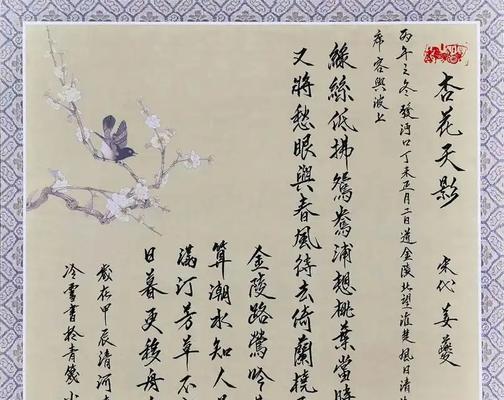 杏花天影
宋代 姜夔
丙午之冬發沔口丁未正月二日道金陵北望淮楚風日清
席容與波上
綠絲低拂鴛鴦浦想桃葉當時
又將愁眼與春風待去倚蘭橈
金陵路鶯吟
算潮水知人
滿汀芳草不
日暮更移舟
歲在甲辰清河
冷雪書於青箋小